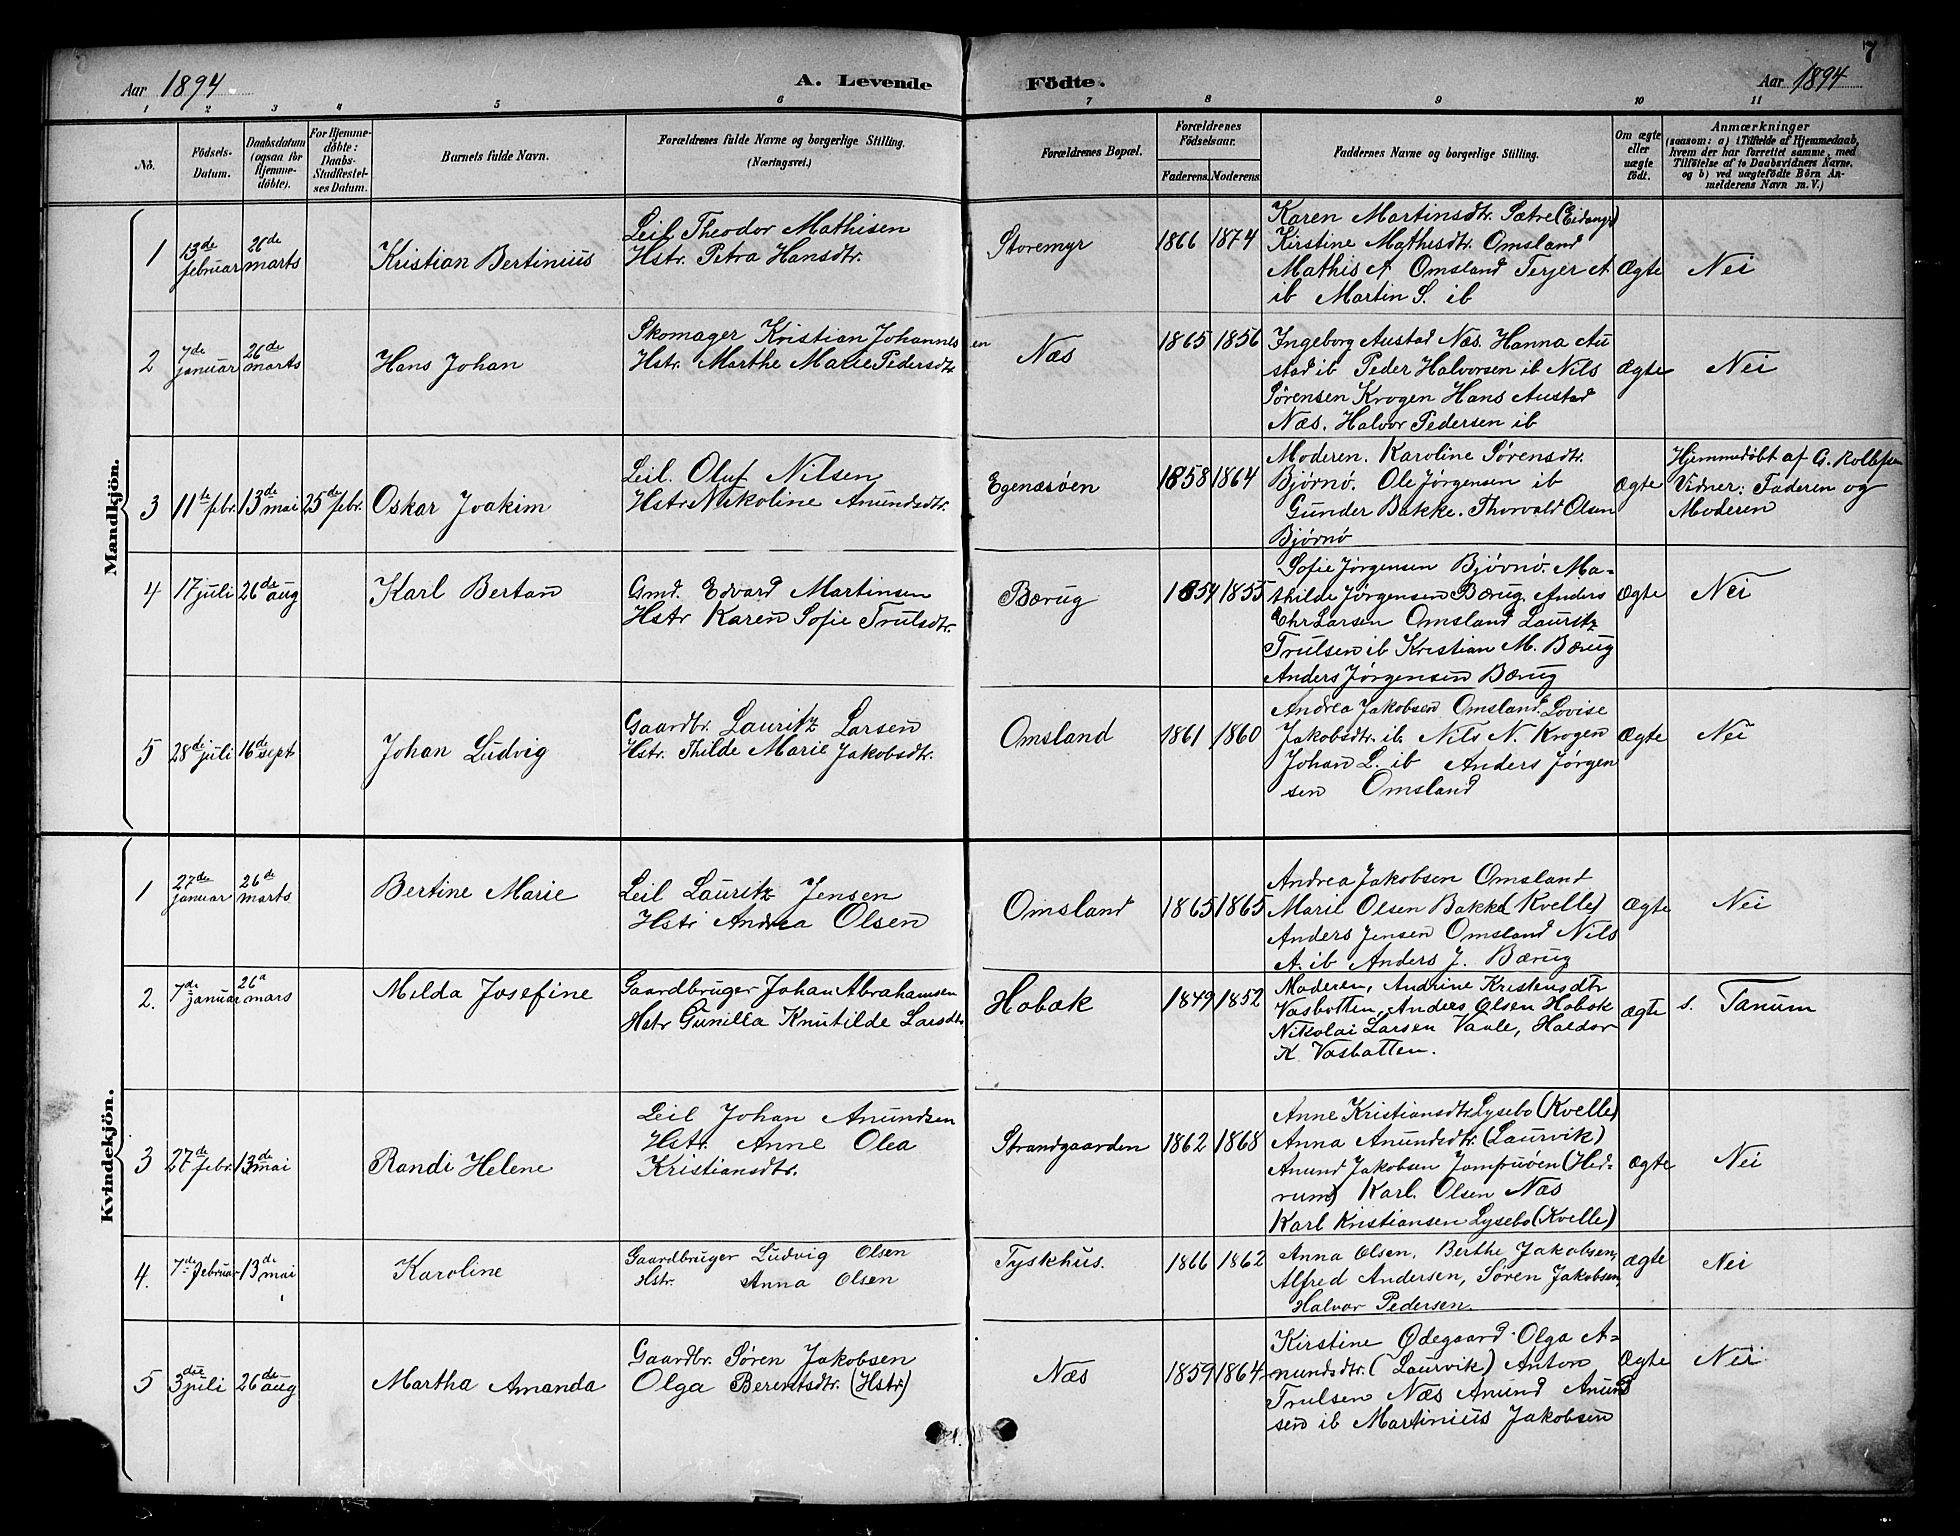 7
Aar 1894
A. Levende
Födte.
Aar 1894
1 2 3 4 5 6 7 8 9 10 11
No.
Födsels-
Datum.
Daabsdatum
(ogsaa for
Hjemme-
döbte).
For Hjemme-
döbte:
Daabs-
Stadfæstel-
ses Datum.
Barnets fulde Navn.
Forældrenes fulde Navne og borgerlige Stilling.
(Næringsvei.)
Forældrenes Bopæl.
Forældrenes
Födselsaar.
Faderens. Moderens.
Faddernes Navne og borgerlige Stilling.
Om ægte
eller
uægte
födt.
Anmærkninger
(saasom: a) i Tilfælde af Hjemmedaab,
hvem der har forrettet samme, med
Tilföielse af to Daabsvidners Navne,
og b) ved uægtefödte Börn An-
melderens Navn m. V.)
Mandkjön.
1
13de
februar
26de
marts
Kristian Bertinius
Leil. Theodor Mathisen
Hstr. Petra Hansdtr.
Storemyr
1866 1874
Karen Martinsdtr. Sætre (Eidanger)
Kirstine Mathisdtr. Omsland
Mathis A Omsland Terjer A
ib Martin S. ib
Ægte
Nei
2
7de
januar
26de
marts
Hans Johan
Skomager Kristian Johannesen
Hstr. Marthe Marie Pedersdtr
Næs
1865 1856
Ingeborg Austad Næs. Hanna Au
stad ib Peder Halvorsen ib Nils
Sørensen Krogen Hans Austad
Næs. Halvor Pedersen ib
Ægte
Nei
3
11te febr.
13de mai
25de febr.
Oskar Joakim
Leil. Oluf Nilsen
Hstr Nikoline Anundsdtr.
Egenæsøen
1858 1864
Moderen. Karoline Sørensdtr.
Bjørnø. Ole Jørgensen ib
Gunder Bakke. Thorvald Olsen
Bjørnø
Ægte
Hjemmedøbt af G. Rollefsen
Vidner: Faderen og
Moderen
4
17 juli
26de aug
Karl Bertan
Gmd. Edvard Martinsen
Hstr Karen Sofie Trulsdtr.
Bærug
1854 1855
Sofie Jørgensen Bjørnø. Ma-
thilde Jørgensen Bærug. Anders
Chr Larsen Omsland Lauritz
Trulsen ib Kristian M. Bærug
Anders Jørgensen Bærug
Ægte
Nei
5
28de juli
16de sept
Johan Ludvig
Gaardbr. Lauritz Larsen
Hstr. Thilde Marie Jakobsdtr.
Omsland
1861 1860
Andrea Jakobsen Omsland. Lovise
Jakobsdtr. ib. Nils N. Krogen
Johan L. ib Anders Jørgen
sen Omsland
Ægte
Nei
Kvindekjön.
1
27de
januar
26de
marts
Bertine Marie
Leil Lauritz Jensen
Hstr Andrea Olsen
Omsland
1865 1865
Andrea Jakobsen Omsland
Marie Olsen Bakke (Kvelle)
Anders Jensen Omsland Nils
A. ib Anders J. Bærug
Ægte
Nei
2.
7de
januar
26
mars
Milda Josefine
Gaardbruger Johan Abrahamsen
Hstr Gunilla Knutilde Larsdtr
Hobæk
1849 1852
Moderen, Andrine Kristensdtr
Vasbotten, Anders Olsen Hobæk
Nikolai Larsen Vaale, Haldor
K Vasbotten.
ægte
s. Tanum
3
27de febr.
13de mai
Randi Helene
Leil Johan Anundsen
Hstr. Anne Olea
Kristiansdtr.
Strandgaarden
1862 1868
Anne Kristiansdtr. Lysebo (Kvelle)
Anna Anundsdtr. (Laurvik)
Anund Jakobsen (Hed-
rum) Karl. Olsen Næs
Karl Kristiansen Lysebo (Kvelle)
Ægte
Nei
4.
7de februar
13de mai
Karoline
Gaardbruger Ludvig Olsen
Hstr. Anna Olsen
Tyskhus.
1866 1862
Anna Olsen, Berthe Jakobsen,
Alfred Andersen, Søren Jakobsen,
Halvor Pedersen
ægte
Nei
5
3die
juli
26de aug
Martha Amanda
Gaardbr. Søren Jakobsen
Olga Berentsdtr. (Hstr)
Næs
1859 1864
Kirstine Ødegaard. Olga A-
mundsdtr. (Laurvik) Anton
Trulsen Næs Anund Anund
sen ib Martinius Jakobsen
Ægte
Nei